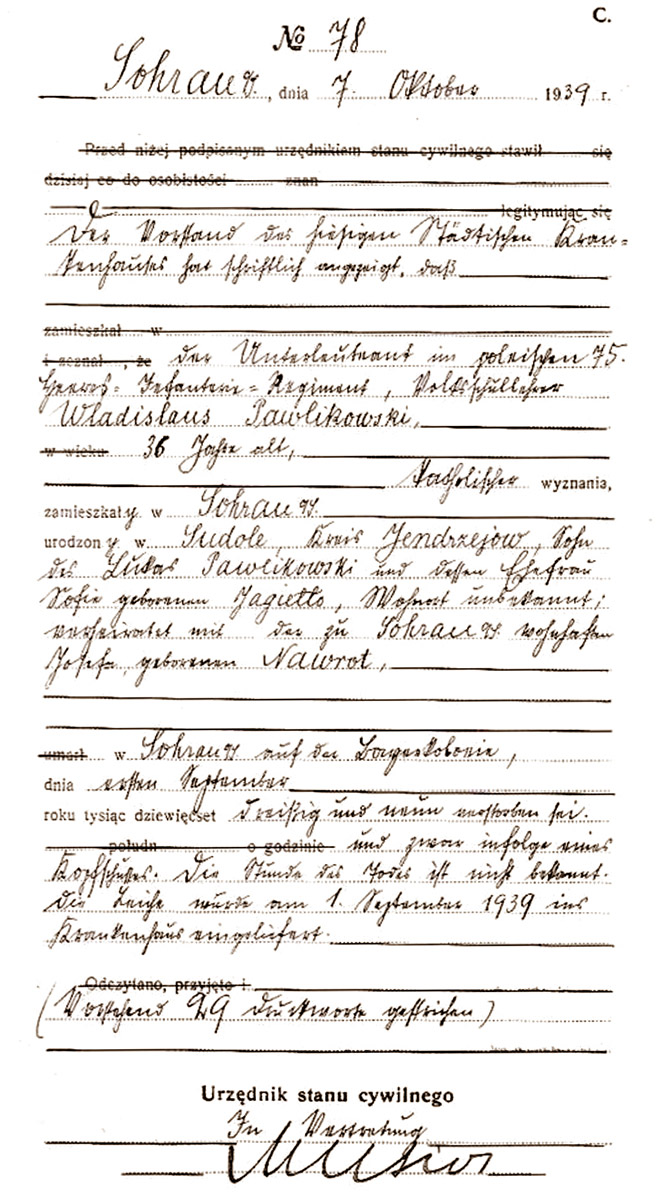 C.
No 78
Sohrau O/S., dnia 7. Oktober 1939 r.
Przed niżej podpisanym urzędnikiem stanu cywilnego stawił się
dzisiaj co do osobistości znan
legitymując się
Der Vorstand des hiesigen Städtischen Kran=
kenhauses hat schriftlich angezeigt, daß
zamieszkał w
i zeznał, że der Unterleutnant im polnischen 75.
Heeres=Infanterie=Regiment, Volksschullehrer
Wladislaus Pawlikowski,
w wieku 36 Jahre alt,
katholischer wyznania,
zamieszkały w Sohrau O/S.
urodzony w Sudole, Kreis Jendrzejow, Sohn
des Lukas Pawlikowski und dessen Ehefrau
Sofie geborenen Jagiełło, Wohnort unbekannt;
verheiratet mit der zu Sohrau O/S. wohnhaften
Josefa, geborenen Nawrot,
umarł w Sohrau O/S auf der
dnia ersten September
roku tysiąc dziewięćset dreißig und neun verstorben sei.
połudn o godzinie und zwar infolge eines
Kopfschusses. Die Stunde des Todes ist nicht bekannt.
Die Leiche wurde am 1. September 1939 ins
Krankenhaus eingeliefert.
Odczytano, przyjęto i
(Vorstehend 29 Druckworte gestrichen)
Urzędnik stanu cywilnego
In Vertretung